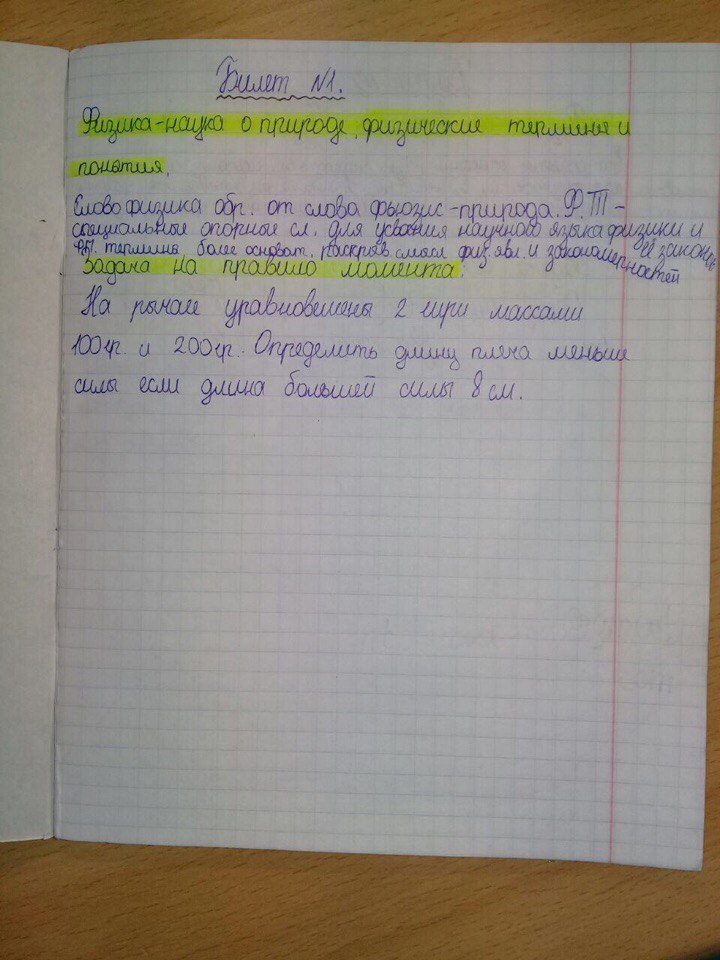 Билет №1.
Физика-наука о природе, физические термины и
понятия.
Слово физика обр. от слова фьюзис-природа. Ф.Т-
специальные опорные сл. для усвания научного языка физики и
её законов
термины более основат. раскрыв. смысл физ. явл. и закономерностей
Задача на правило момента.
На рычаге уравновешены 2 гири массами
100гр. и 200гр. Определить длину плеча меньше
силы если длина большей силы 8 см.